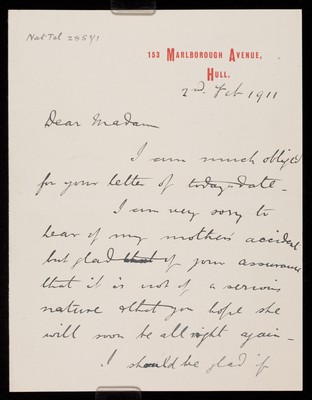 Nat Tel 2554/1
153 MARLBOROUGH AVENUE,
HULL.
2nd Feb 1911
Dear Madam
I am much obliged
for your letter of today's date -
I am very sorry to
hear of my mother's accident
but glad that of your assurance
that it is not of a serious
nature & that you hope she
will soon be all right again -
I should be glad if